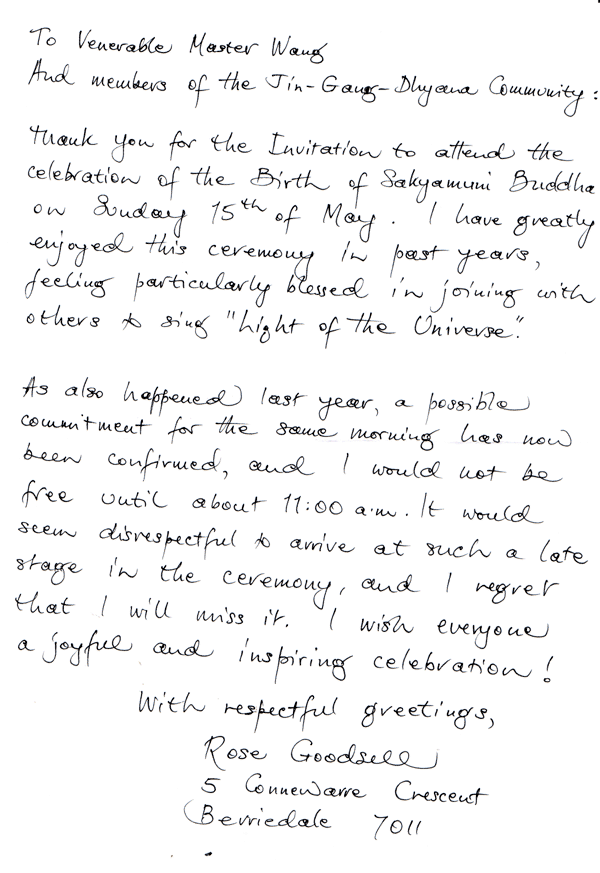 To Venerable Master Wang
And members of the Jin-Gang-Dhyana Community:
Thank you for the Invitation to attend the
celebration of the Birth of Sakyamuni Buddha
on Sunday 15th of May. I have greatly
enjoyed this ceremony in past years,
feeling particularly blessed in joining with
others to sing "Light of the Universe".
As also happened last year, a possible
commitment for the same morning has now
been confirmed, and I would not be
free until about 11:00 a.m. It would
seem disrespectful to arrive at such a late
stage in the ceremony, and I regret
that I will miss it. I wish everyone
a joyful and inspiring celebration!
With respectful greetings,
Rose Goodsell
5 Connewarre Crescent
Berriedale 7011